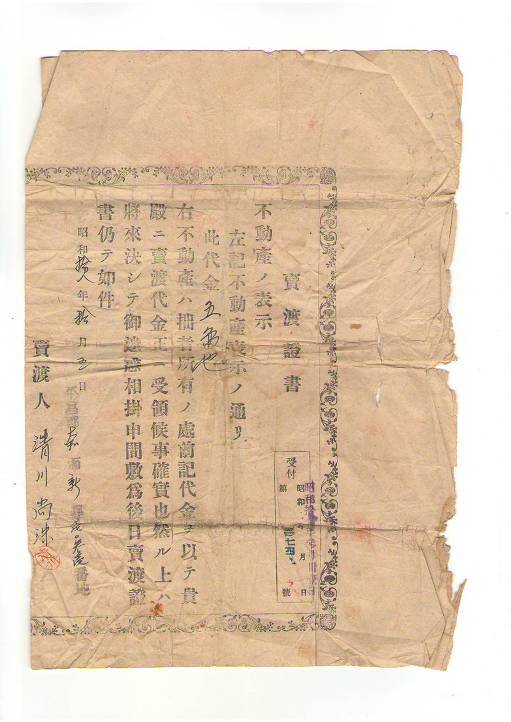 賣渡證書
不動産ノ表示
左記不動産表示ノ通リ
此代金
右不動産ハ拙者所有ノ處前記代金ヲ以テ貴
殿ニ賣渡代金正ニ受領候事確實也然ル上ハ
將來決シテ御迷惑相掛申間敷爲後日賣渡證
書仍テ如件
昭和拾八年拾月五日
番地
賣渡人 清川尚洙
受付
昭和 年 月 日
第 號